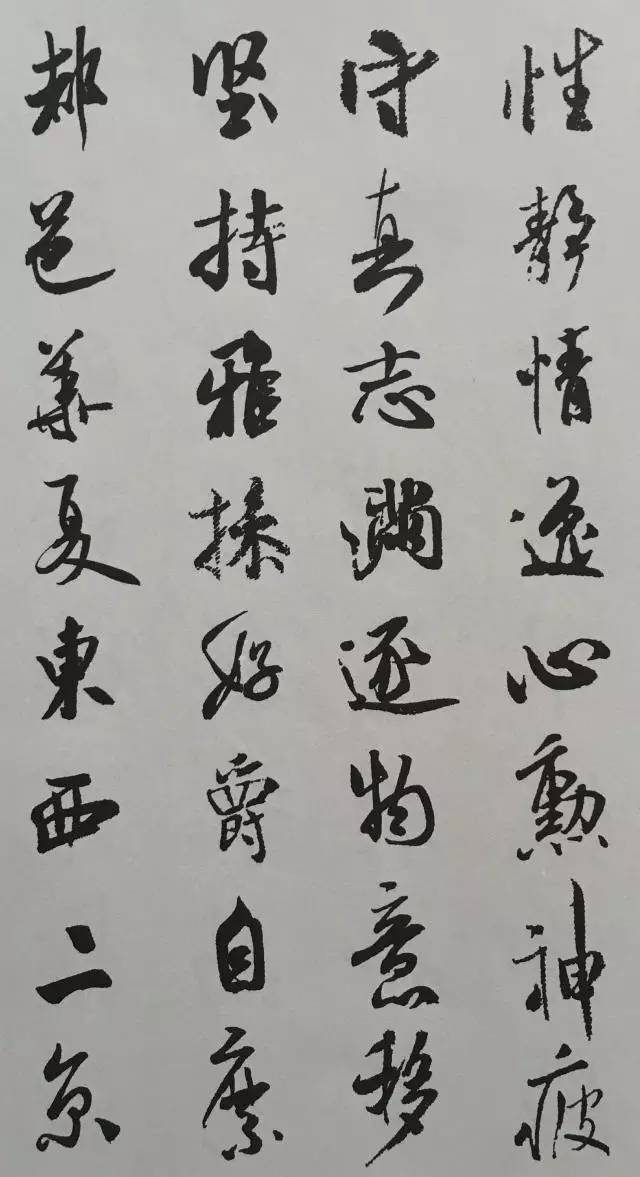 性靜情逸心勲神疲
守真志滿逐物意移
堅持雅操好爵自縻
都邑華夏東西二京